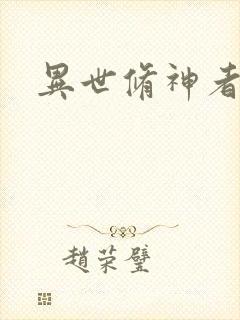 異世脩神者
趙荣璧